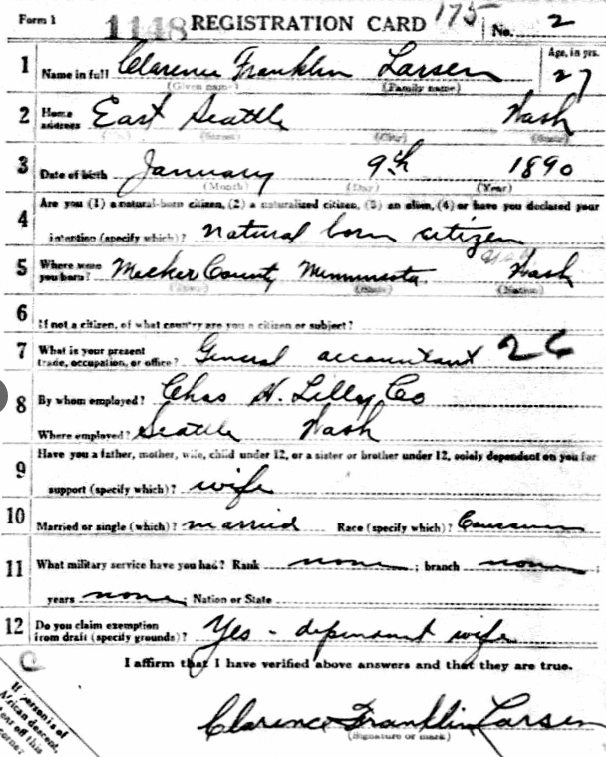 Form 1 1148 REGISTRATION CARD 175 No. 2
1 Name in full Clarence Franklin Larsen Age, in yrs. 27
(Given name) (Family name)
2 Home address East Seattle Wash
(No.) (Street) (City) (State)
3 Date of birth January 9th 1890
(Month) (Day) (Year)
4 Are you (1) a natural-born citizen, (2) a naturalized citizen, (3) an alien, (4) or have you declared your
intention (specify which)? natural born citizen
5 Where were you born? Meeker County Minnusota Wash
(Town) (State) (Nation)
6 If not a citizen, of what country are you a citizen or subject?
7 What is your present trade, occupation, or office? General accountant 26
8 By whom employed? Chas H. Lilly Co
Where employed? Seattle Wash
9 Have you a father, mother, wife, child under 12, or a sister or brother under 12, solely dependent on you for
support (specify which)? wife
10 Married or single (which)? married Race (specify which)? Caucasian
11 What military service have you had? Rank none ; branch none ;
years none ; Nation or State
12 Do you claim exemption from draft (specify grounds)? Yes - dependant wife
I affirm that I have verified above answers and that they are true.
Clarence Franklin Larsen
(Signature or mark)
If person is of
African descent,
tear off this
corner